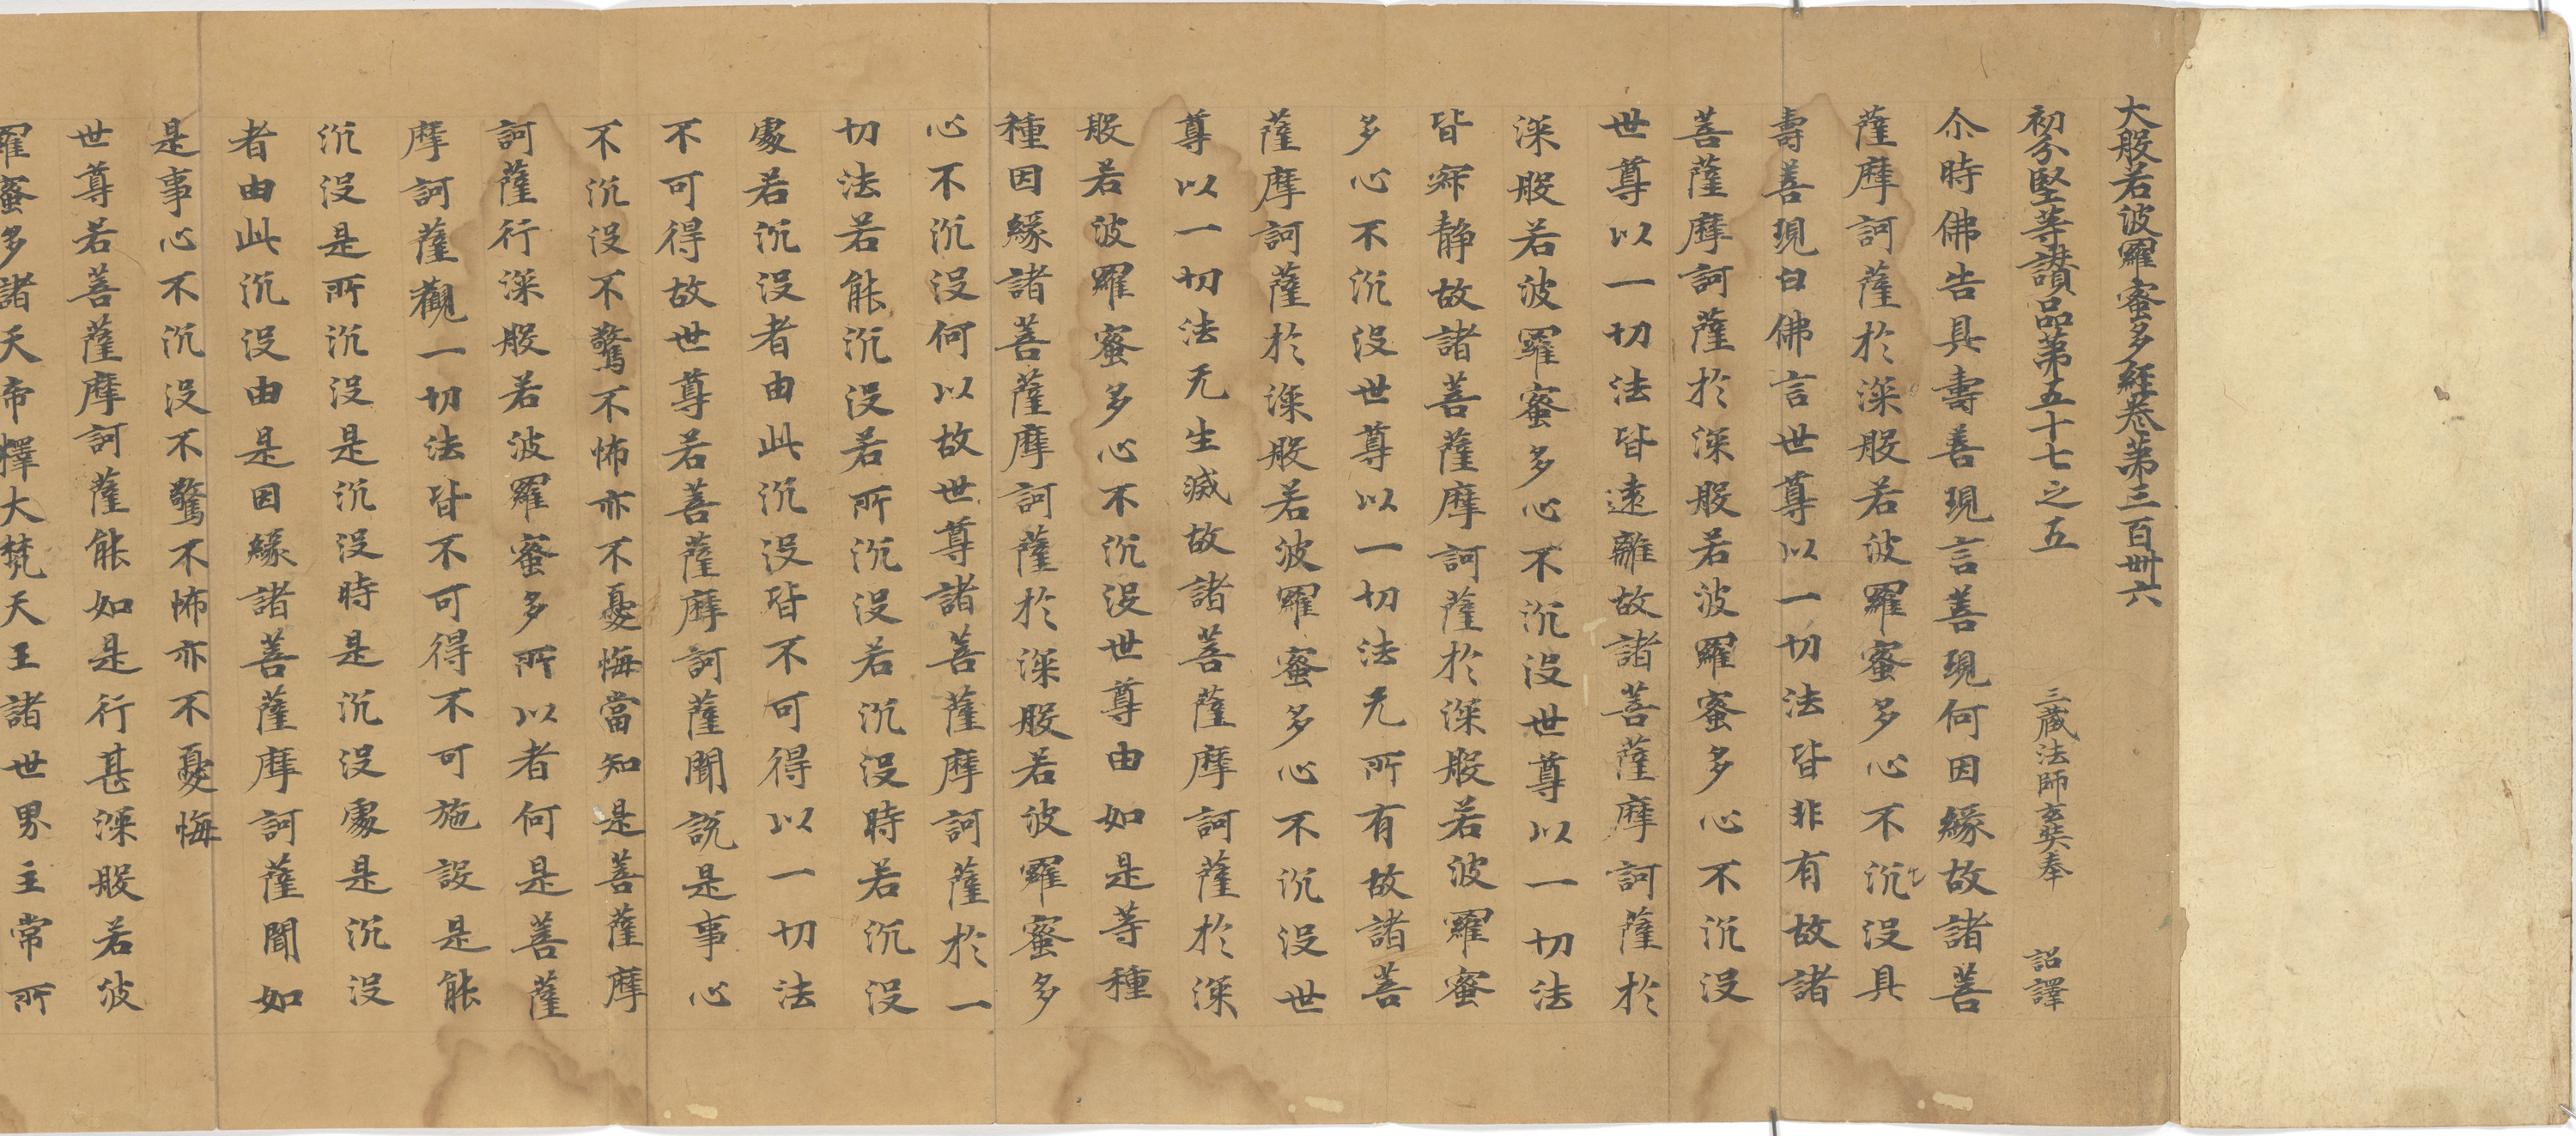 大般若波羅蜜多經卷第三百卌六
初分堅等讚品第五十七之五
三藏法師玄奘奉　詔譯
尒時佛告具壽善現言善現何因緣故諸菩
薩摩訶薩於深般若波羅蜜多心不沉没具
壽善現白佛言世尊以一切法皆非有故諸
菩薩摩訶薩於深般若波羅蜜多心不沉没
世尊以一切法皆遠離故諸菩薩摩訶薩於
深般若波羅蜜多心不沉没世尊以一切法
皆寂静故諸菩薩摩訶薩於深般若波羅蜜
多心不沉没世尊以一切法无所有故諸菩
薩摩訶薩於深般若波羅蜜多心不沉没世
尊以一切法无生滅故諸菩薩摩訶薩於深
般若波羅蜜多心不沉没世尊由如是等種
種因緣諸菩薩摩訶薩於深般若波羅蜜多
心不沉没何以故世尊諸菩薩摩訶薩於一
切法若能沉没若所沉没若沉没時若沉没
處若沉没者由此沉没皆不可得以一切法
不可得故世尊若菩薩摩訶薩聞説是事心
不沉没不驚不怖亦不憂悔當知是菩薩摩
訶薩行深般若波羅蜜多所以者何是菩薩
摩訶薩觀一切法皆不可得不可施設是能
沉没是所沉没是沉没時是沉没處是沉没
者由此沉没由是因緣諸菩薩摩訶薩聞如
是事心不沉没不驚不怖亦不憂悔
世尊若菩薩摩訶薩能如是行甚深般若波
羅蜜多諸天帝釋大梵天王諸世界主常所